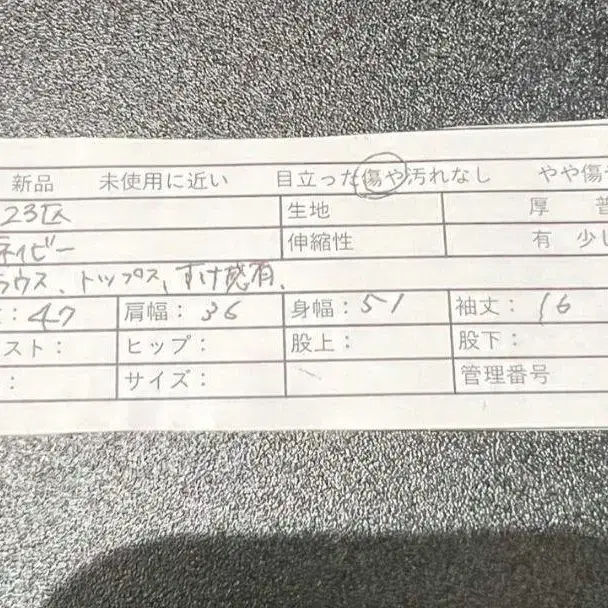 新品 未使用に近い 目立った傷や汚れなし やや傷
23区 生地 厚 普
ネイビー 伸縮性 有 少し
ラウス、トップス、すけ感有、
: 47 肩幅: 36 身幅: 51 袖丈: 16
スト: ヒップ: 股上: 股下:
: サイズ: 管理番号